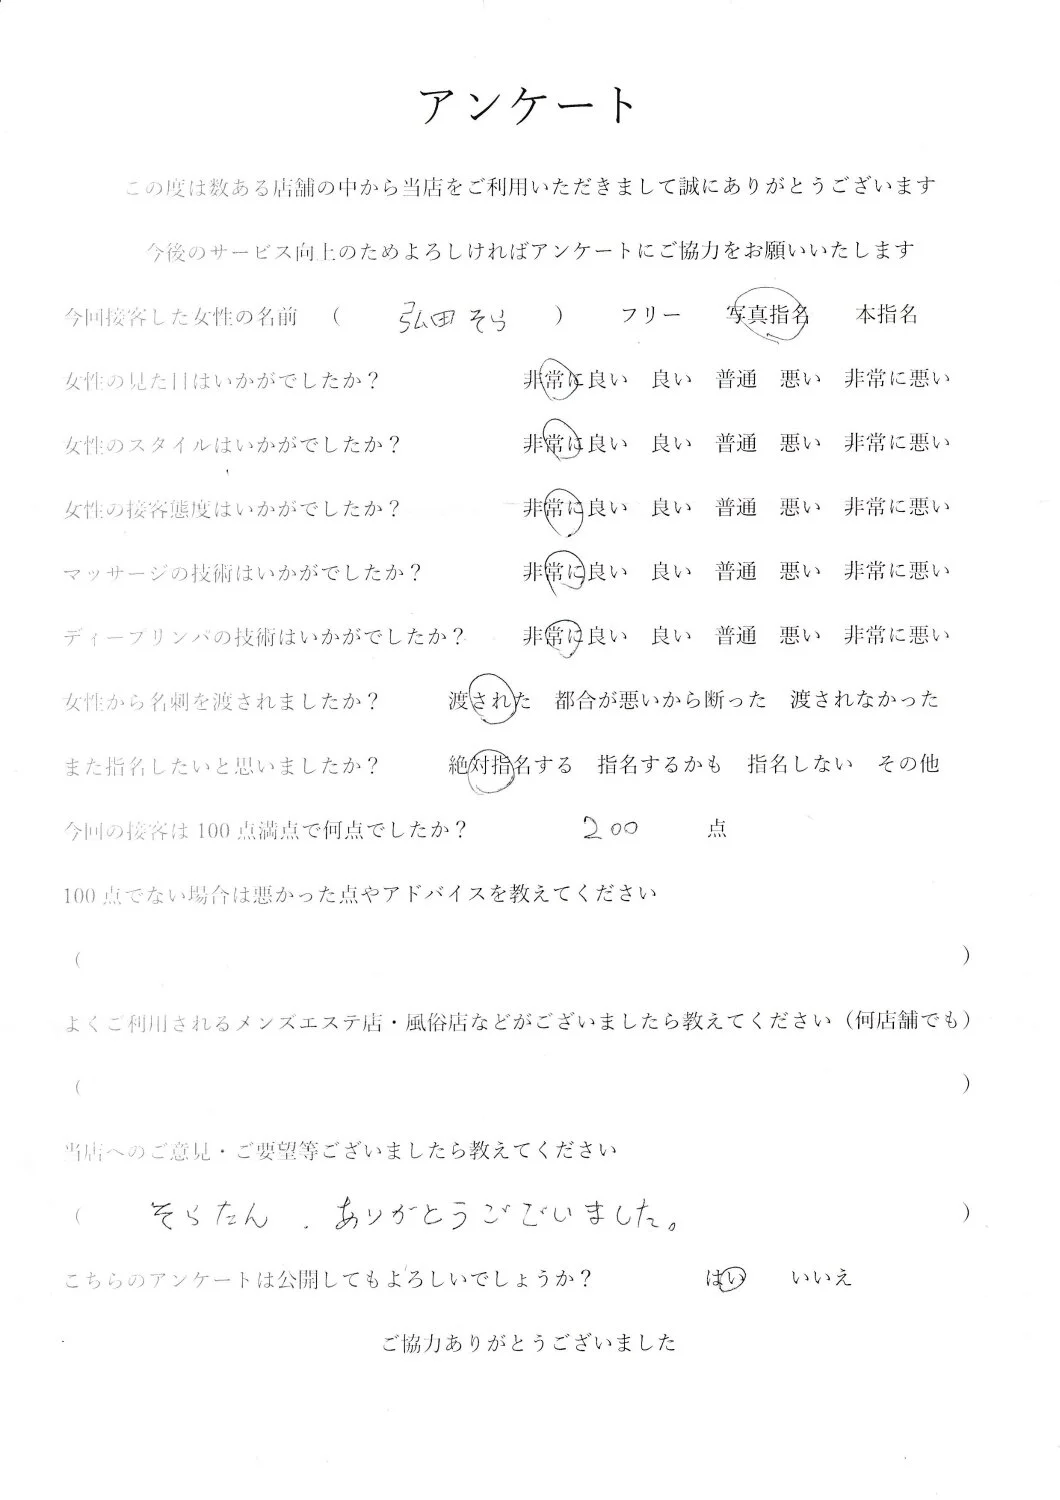 アンケート
この度は数ある店舗の中から当店をご利用いただきまして誠にありがとうございます
今後のサービス向上のためよろしければアンケートにご協力をお願いいたします
今回接客した女性の名前 ( 弘田そら ) フリー 写真指名 本指名
女性の見た目はいかがでしたか? 非常に良い 良い 普通 悪い 非常に悪い
女性のスタイルはいかがでしたか? 非常に良い 良い 普通 悪い 非常に悪い
女性の接客態度はいかがでしたか? 非常に良い 良い 普通 悪い 非常に悪い
マッサージの技術はいかがでしたか? 非常に良い 良い 普通 悪い 非常に悪い
ディープリンパの技術はいかがでしたか? 非常に良い 良い 普通 悪い 非常に悪い
女性から名刺を渡されましたか? 渡された 都合が悪いから断った 渡されなかった
また指名したいと思いましたか? 絶対指名する 指名するかも 指名しない その他
今回の接客は100点満点で何点でしたか? 200 点
100点でない場合は悪かった点やアドバイスを教えてください
( )
よくご利用されるメンズエステ店・風俗店などがございましたら教えてください(何店舗でも)
( )
当店へのご意見・ご要望等ございましたら教えてください
( そらたん、ありがとうございました。 )
こちらのアンケートは公開してもよろしいでしょうか? はい いいえ
ご協力ありがとうございました